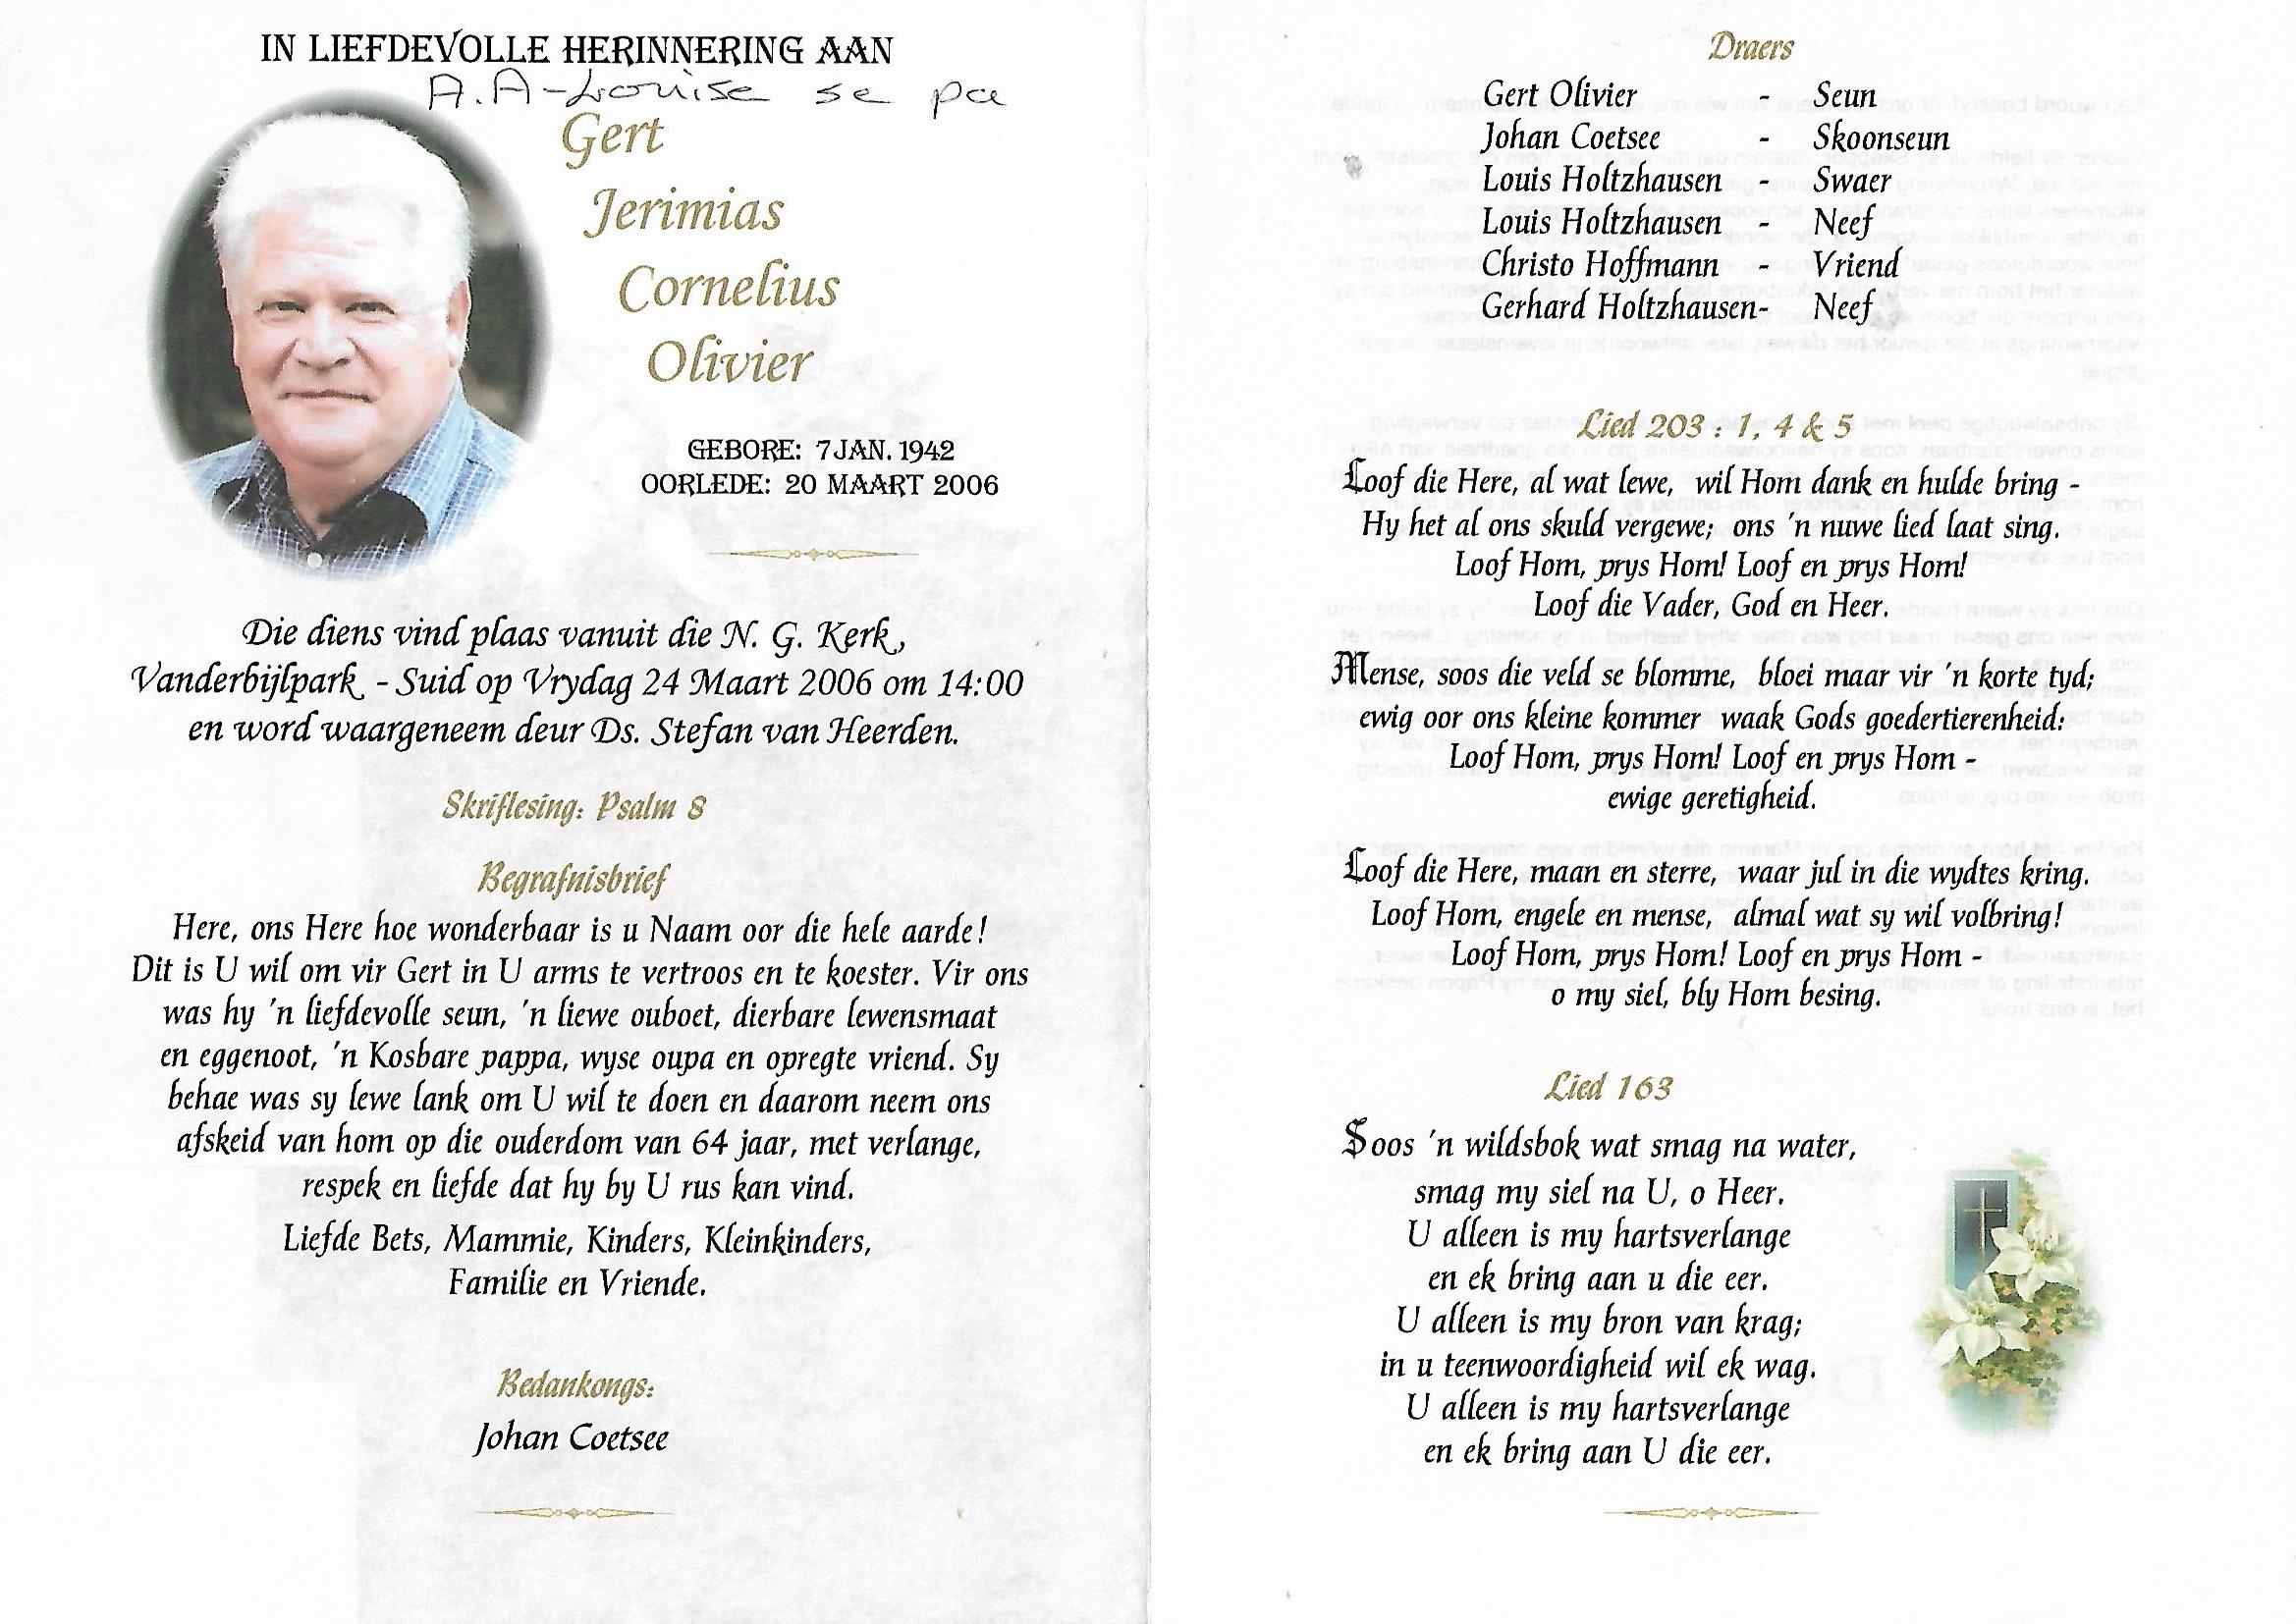 IN LIEFDEVOLLE HERINNERING AAN
A.A-Louise se pa
Gert
Jerimias
Cornelius
Olivier
GEBORE: 7 JAN. 1942
OORLEDE: 20 MAART 2006
Die diens vind plaas vanuit die N. G. Kerk,
Vanderbijlpark - Suid op Vrydag 24 Maart 2006 om 14:00
en word waargeneem deur Ds. Stefan van Heerden.
Skriflesing: Psalm 8
Begrafnisbrief
Here, ons Here hoe wonderbaar is u Naam oor die hele aarde!
Dit is U wil om vir Gert in U arms te vertroos en te koester. Vir ons
was hy 'n liefdevolle seun, 'n liewe ouboet, dierbare lewensmaat
en eggenoot, 'n Kosbare pappa, wyse oupa en opregte vriend. Sy
behae was sy lewe lank om U wil te doen en daarom neem ons
afskeid van hom op die ouderdom van 64 jaar, met verlange,
respek en liefde dat hy by U rus kan vind.
Liefde Bets, Mammie, Kinders, Kleinkinders,
Familie en Vriende.
Bedankongs:
Johan Coetsee
Draers
Gert Olivier - Seun
Johan Coetsee - Skoonseun
Louis Holtzhausen - Swaer
Louis Holtzhausen - Neef
Christo Hoffmann - Vriend
Gerhard Holtzhausen- Neef
Lied 203 : 1, 4 & 5
Loof die Here, al wat lewe, wil Hom dank en hulde bring -
Hy het al ons skuld vergewe; ons 'n nuwe lied laat sing.
Loof Hom, prys Hom! Loof en prys Hom!
Loof die Vader, God en Heer.
Mense, soos die veld se blomme, bloei maar vir 'n korte tyd;
ewig oor ons kleine kommer waak Gods goedertierenheid:
Loof Hom, prys Hom! Loof en prys Hom -
ewige geretigheid.
Loof die Here, maan en sterre, waar jul in die wydtes kring.
Loof Hom, engele en mense, almal wat sy wil volbring!
Loof Hom, prys Hom! Loof en prys Hom -
o my siel, bly Hom besing.
Lied 163
Soos 'n wildsbok wat smag na water,
smag my siel na U, o Heer.
U alleen is my hartsverlange
en ek bring aan u die eer.
U alleen is my bron van krag;
in u teenwoordigheid wil ek wag.
U alleen is my hartsverlange
en ek bring aan U die eer.